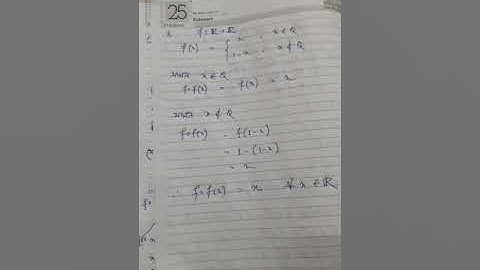 25
February
f: R→R
f(x) = { x , x ∈ Q
1-x , x ∉ Q
x ∈ Q
f∘f(x) = f(x) = x
x ∉ Q
f∘f(x) = f(1-x)
= 1-(1-x)
= x
∴ f∘f(x) = x ∀ x ∈ R